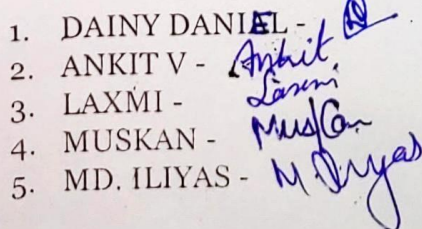 1. DAINY DANIEL -
2. ANKIT V - Ankit
3. LAXMI - Laxmi
4. MUSKAN - Muskan
5. MD. ILIYAS - M. Iliyas